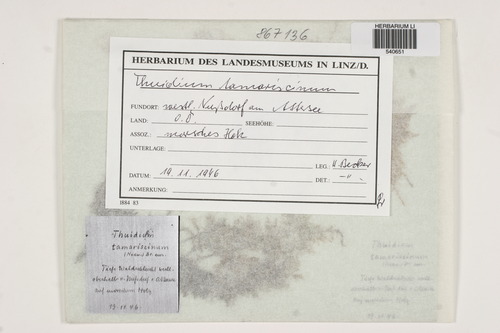 867136
HERBARIUM LI
540651
HERBARIUM DES LANDESMUSEUMS IN LINZ/D.
Thuidium tamariscinum
FUNDORT: westl. Nußdorf am Attersee
LAND: O.Ö. SEEHÖHE:
ASSOZ.: morsches Holz
UNTERLAGE:
LEG.: H. Becker
DATUM: 19.11.1946 DET.: -"-
ANMERKUNG:
1884 83
Thuidium
tamariscinum
(Hedw.) Br. eur.
Tiefe Waldschlucht westl.
oberhalb v. Nußdorf a. Attersee
auf morschem Holz
19.11.46
Thuidium
tamariscinum
19.11.46